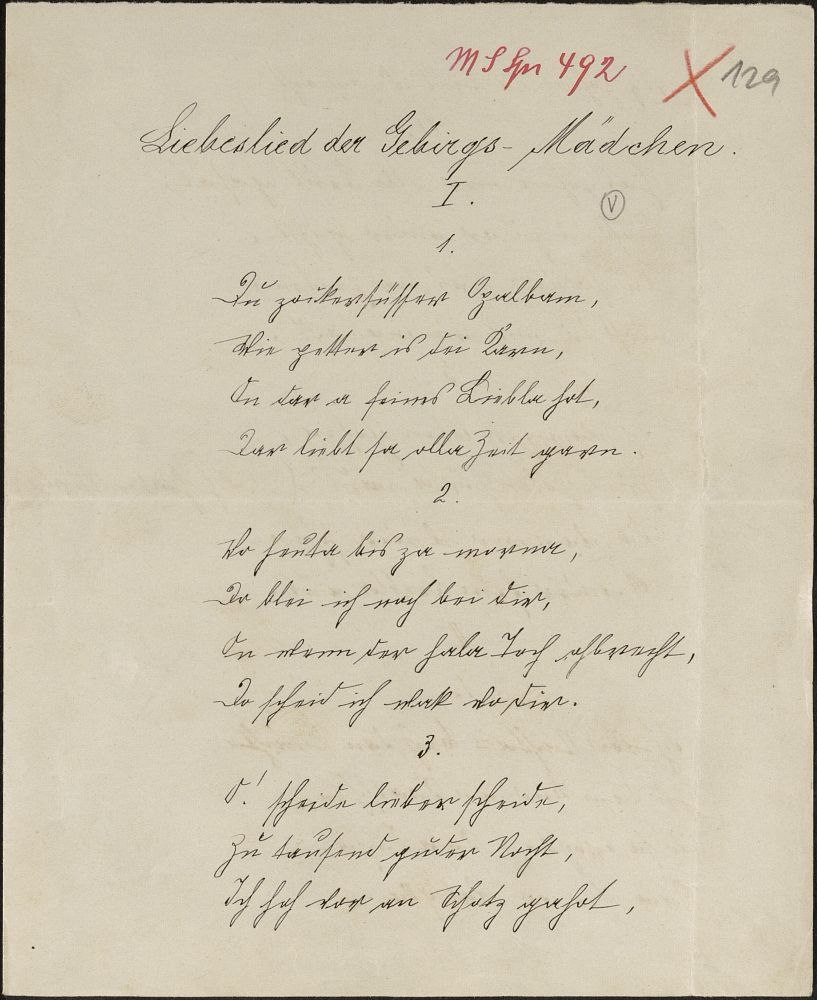 MS 492 X 129
Liebeslied der Gebirgs-Mädchen.
I.
V
1.
Du zockersüsser Opalbam,
Wie petter is dei Karn,
On dar a feines Liebla hot,
Dar liebt sa olla Zeit garn.
2.
Vo heuta bis za morna,
Do blei ich noch bei dir,
On wenn der hala Toch ohbrecht,
Do scheid ich wak vo dir.
3.
O! scheide lieber scheide,
Zu tausend guder Nocht,
Ich hoh vor an Schotz gahot,